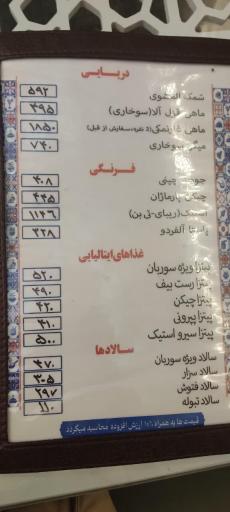 دریایی
شمک المشوی ۵۹۲
ماهی قزل آلا(سوخاری) ۴۹۵
ماهی شارنمکی(2 نفره،سفارش از قبل) ۱۸۵۰
میگو سوخاری ۷۴۰
فرنگی
جوجه چینی ۴۰۸
چیکن پارمژان ۴۴۵
استیک(ریبای-تی بن) ۱۱۴۶
پاستا آلفردو ۳۲۸
غذاهای ایتالیایی
پیتزا ویژه سوریان ۵۲۰
پیتزا رست بیف ۴۹۰
پیتزا چیکن ۴۲۰
پیتزا پپرونی ۴۱۰
پیتزا سیر و استیک ۵۰۰
سالادها
سالاد ویژه سوریان ۴۷۰
سالاد سزار ۳۰۵
سالاد فتوش ۲۹۷
سالاد تبوله ۱۱۰
قیمت ها به همراه ۱۰٪ ارزش افزوده محاسبه میگردد